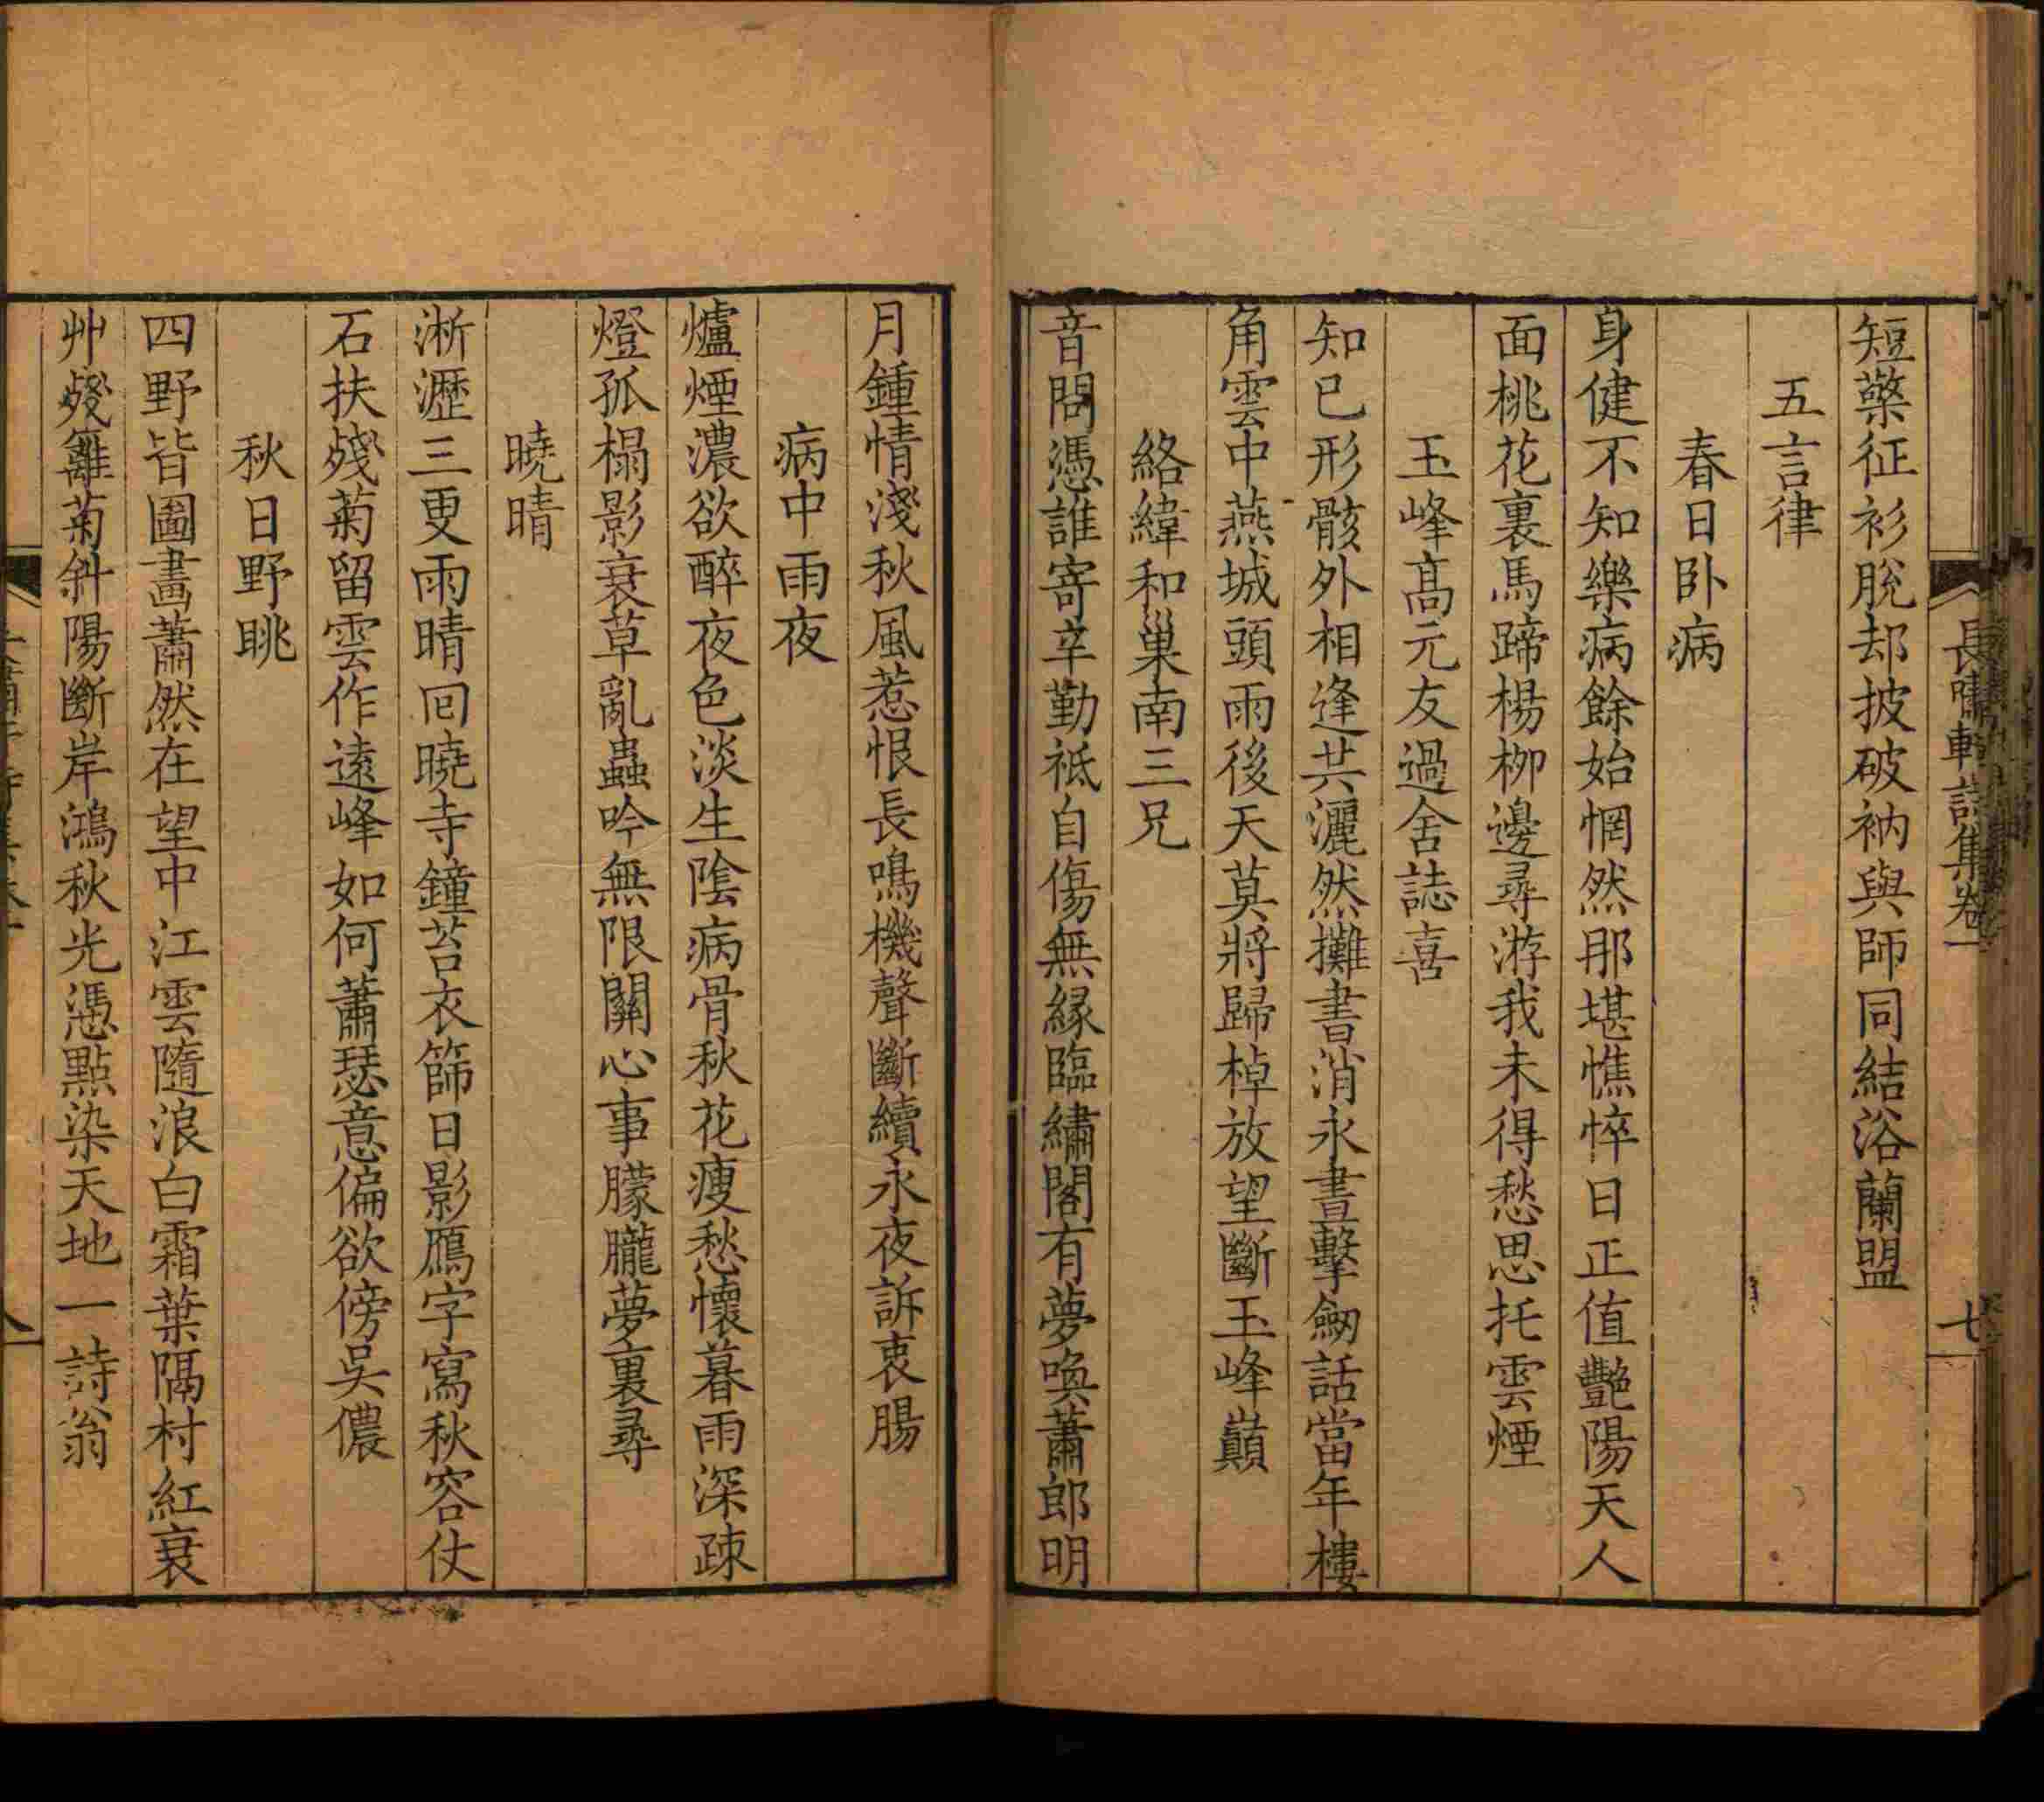 長嘯軒詩集卷一
七
短檠征衫脫却披破衲與師同結浴蘭盟
五言律
春日卧病
身健不知樂病餘始惘然那堪憔悴日正值艷陽天人
面桃花裏馬蹄楊柳邊尋游我未得愁思托雲煙
玉峰高元友過舍誌喜
知已形骸外相逢共灑然攤書消永晝擊劒話當年樓
角雲中燕城頭雨後天莫將歸棹放望斷玉峰巔
絡緯和巢南三兄
音問憑誰寄辛勤祗自傷無緣臨繡閣有夢喚蕭郎明
月鍾情淺秋風惹恨長鳴機聲斷續永夜訴衷腸
病中雨夜
爐煙濃欲醉夜色淡生陰病骨秋花瘦愁懷暮雨深疎
燈孤榻影衰草亂蟲吟無限關心事朦朧夢裏尋
曉晴
淅瀝三更雨晴回曉寺鐘苔衣篩日影鴈字寫秋容仗
石扶殘菊留雲作遠峰如何蕭瑟意偏欲傍吳儂
秋日野眺
四野皆圖畵蕭然在望中江雲隨浪白霜葉隔村紅衰
艸殘籬菊斜陽斷岸鴻秋光憑點染天地一詩翁
八